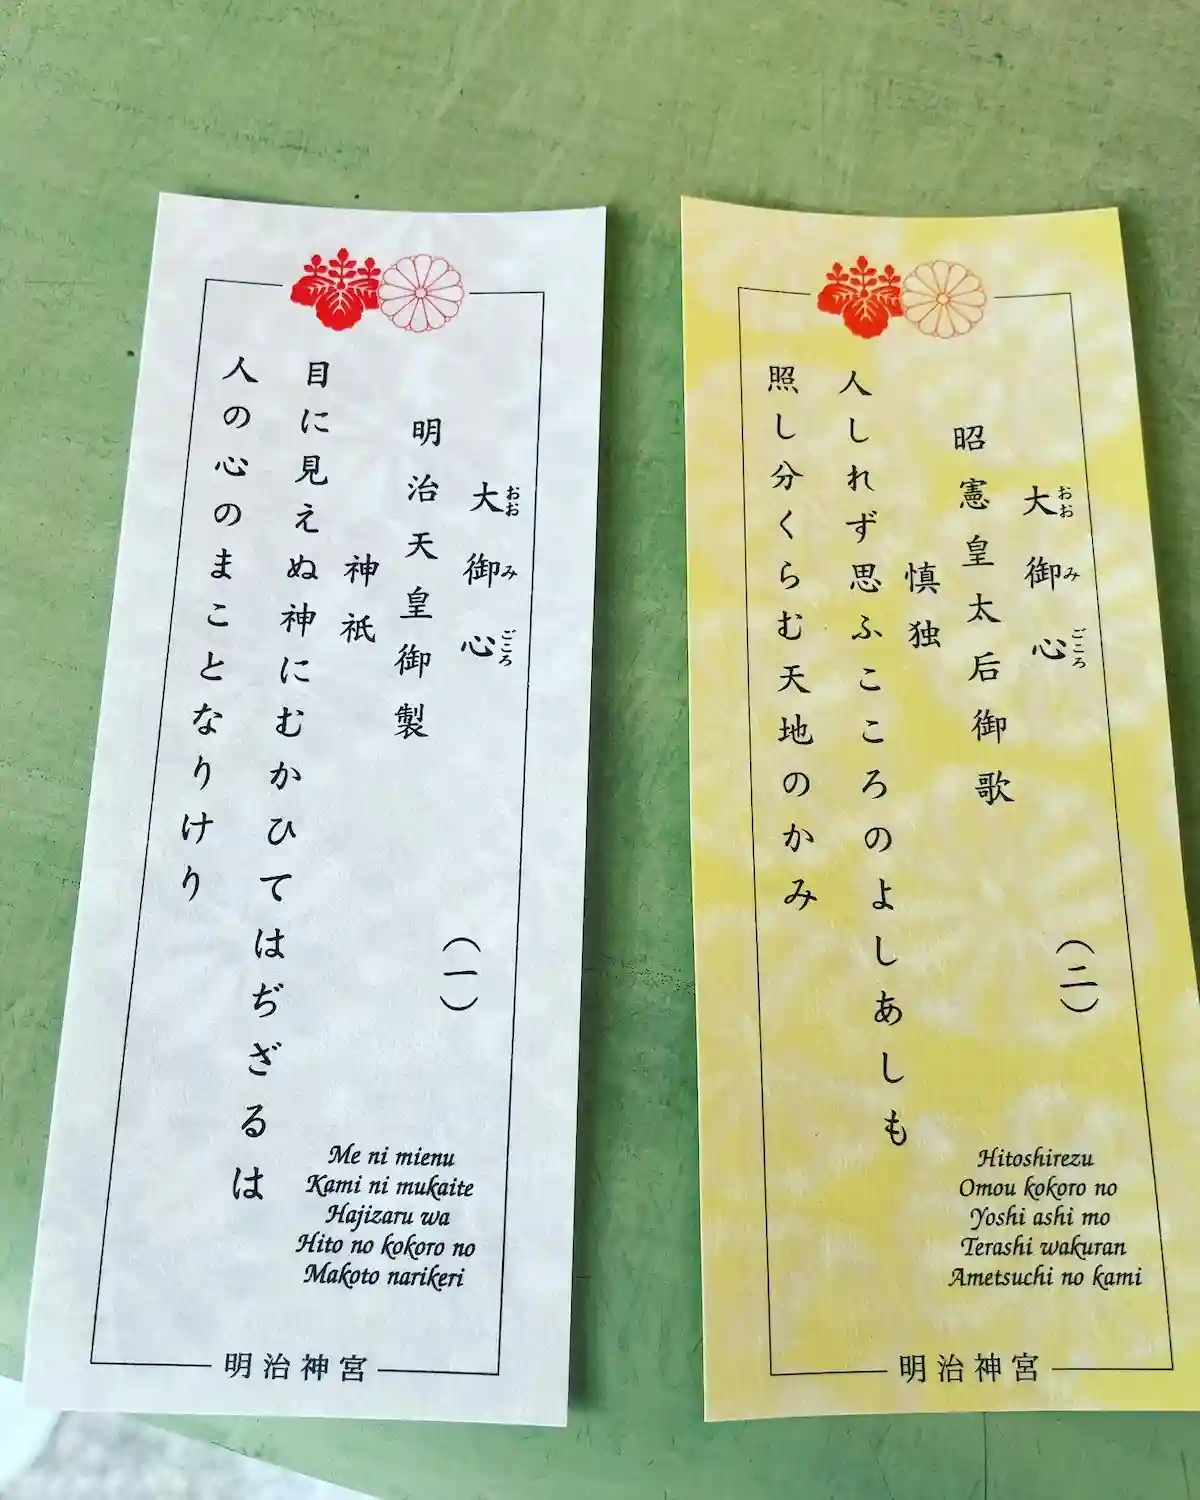 大御心 (一)
おおみごころ
明治天皇御製
神祇
目に見えぬ神にむかひてはぢざるは
人の心のまことなりけり
Me ni mienu
Kami ni mukaite
Hajizaru wa
Hito no kokoro no
Makoto narikeri
明治神宮
大御心 (二)
おおみごころ
昭憲皇太后御歌
慎独
人しれず思ふこころのよしあしも
照し分くらむ天地のかみ
Hitoshirezu
Omou kokoro no
Yoshi ashi mo
Terashi wakuran
Ametsuchi no kami
明治神宮